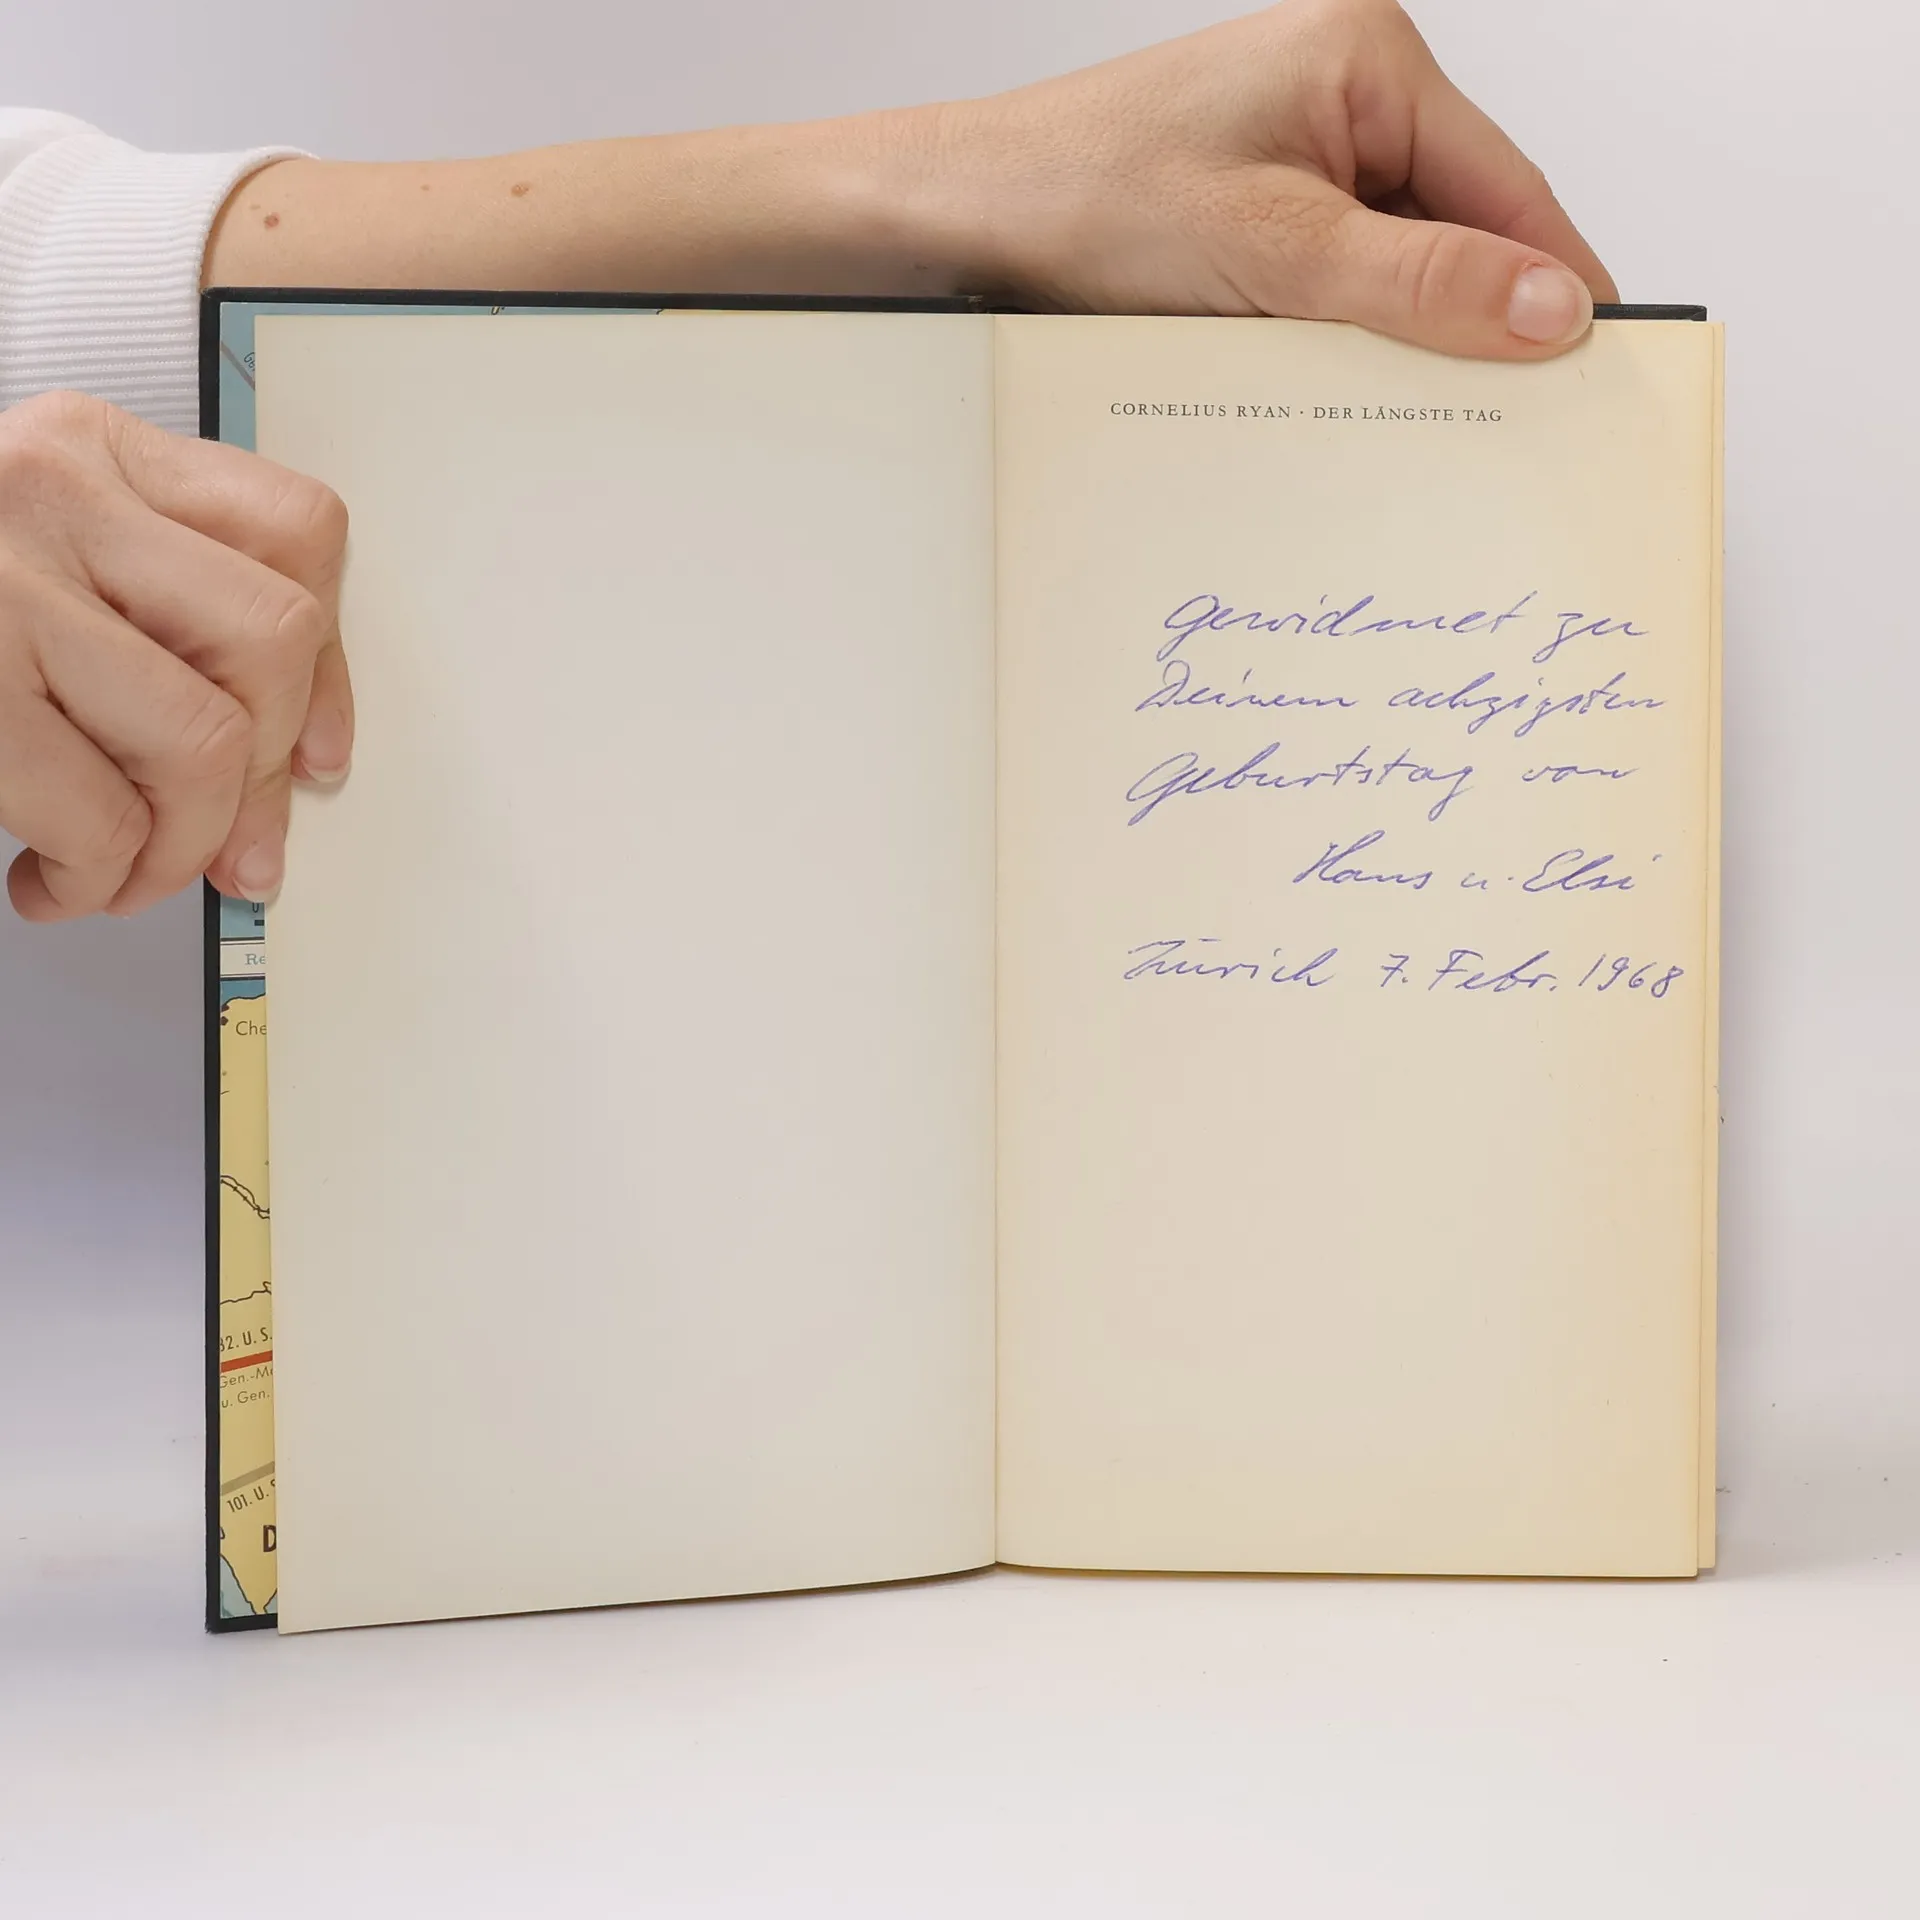 CORNELIUS RYAN · DER LÄNGSTE TAG
Gewidmet zu
Deinem achzigsten
Geburtstag von
Hans u. Elsi
Zürich 7. Febr. 1968
Re
Che
32. U. S.
Gen.-Ma
u. Gen.
101. U. S
D